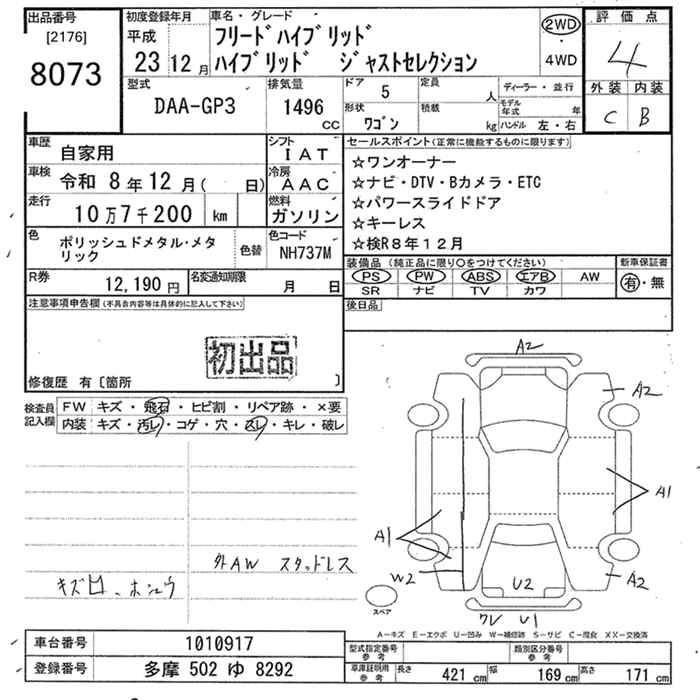 出品番号
[2176]
8073
初度登録年月
平成
23 12 月
車名・グレード
フリードハイブリッド
ハイブリッド ジャストセレクション
2WD
・
4WD
評価点
4
外装 内装
C B
型式
DAA-GP3
排気量
1496
CC
ドア 5
形状
ワゴン
定員
人
積載
kg
ディーラー・並行
モデル年式 年
ハンドル 左・右
車歴
自家用
シフト
IAT
車検
令和 8年12月( 日)
冷房
AAC
走行
10万7千200 km
燃料
ガソリン
色
ポリッシュドメタル・メタリック
色替
色コード
NH737M
R券
12,190 円
名変通知期限
月 日
セールスポイント(正常に機能するものに限ります)
☆ワンオーナー
☆ナビ・DTV・Bカメラ・ETC
☆パワースライドドア
☆キーレス
☆検R8年12月
装備品(純正品に限り○をつけてください)
PS PW ABS エアB AW
SR ナビ TV カワ
新車保証書
有・無
後日品
注意事項申告欄(不具合内容等は具体的に記入して下さい)
初出品
修復歴 有〔箇所 〕
検査員記入欄
FW キズ・飛石・ヒビ割・リペア跡・×要
内装 キズ・汚レ・コゲ・穴・スレ・キレ・破レ
外AW スタッドレス
キズ凹、ホシュウ
A2
A2
A1
A1
W2
U2
A2
ワレ U1
スペア
A－キズ E－エクボ U－凹み W－補修跡 S－サビ C－腐食 XX－交換済
車台番号 1010917
登録番号 多摩 502 ゆ 8292
型式指定番号 参考
類別区分番号 参考
車庫証明用 参考
長さ 421 cm 幅 169 cm 高さ 171 cm